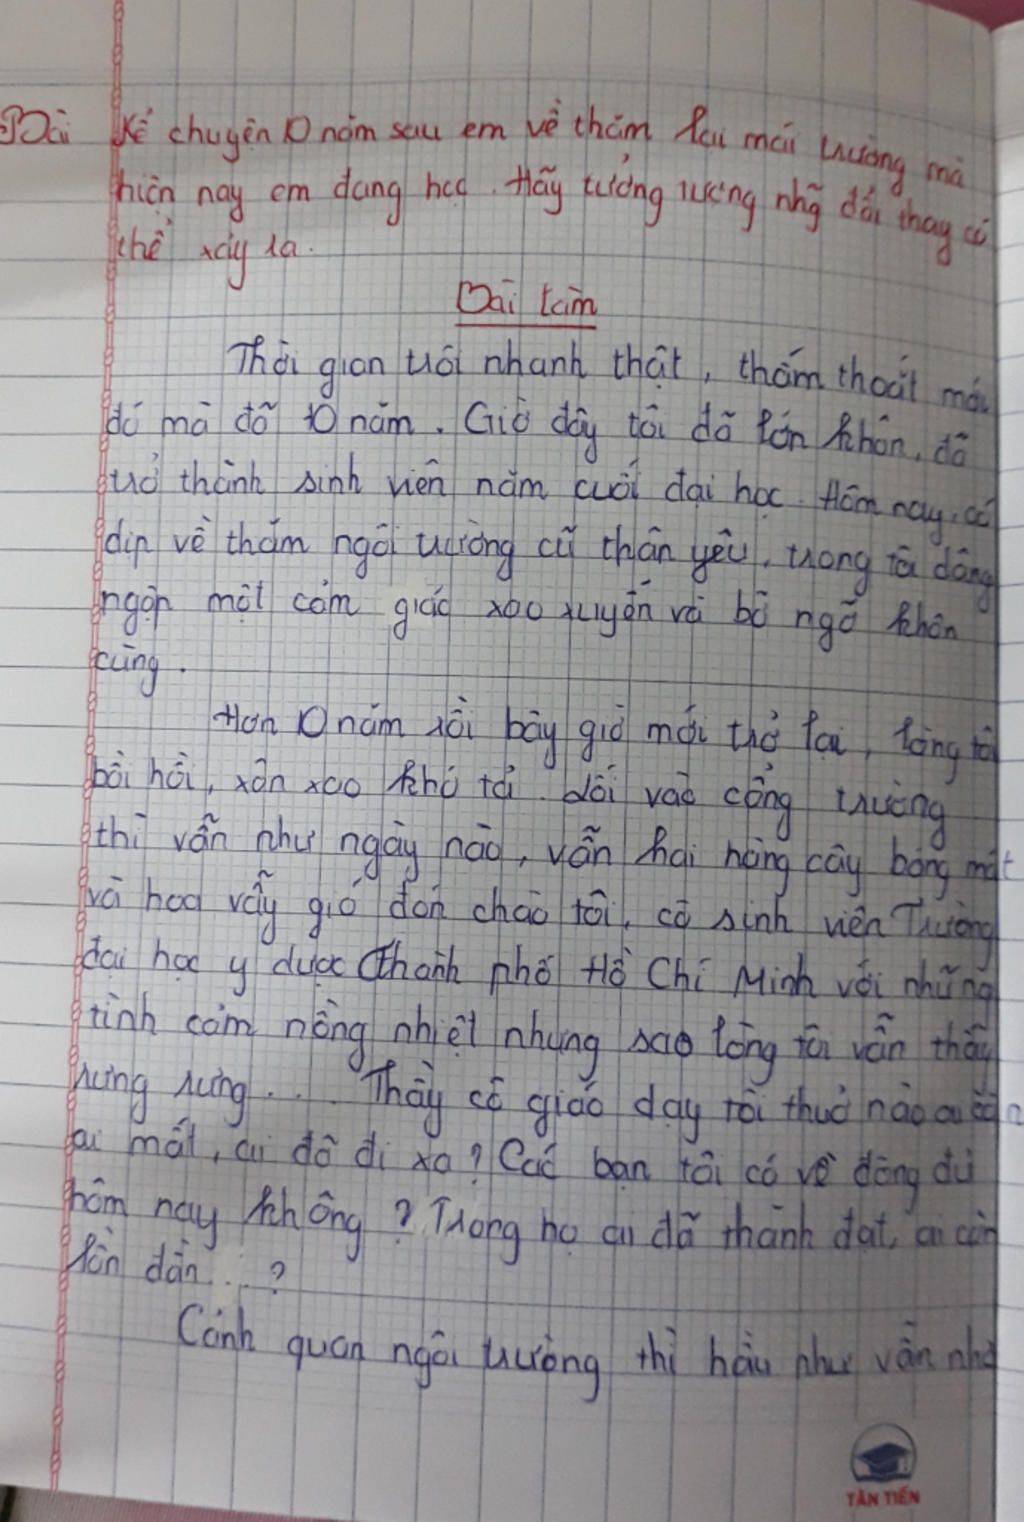 Bài Kể chuyện 10 năm sau em về thăm lại mái trường mà
hiện nay em đang học. Hãy tưởng tượng nhg đổi thay có
thể xảy ra.
Bài làm
Thời gian trôi nhanh thật, thấm thoát mới
đó mà đã 10 năm. Giờ đây tôi đã lớn khôn, đã
trở thành sinh viên năm cuối đại học. Hôm nay, có
dịp về thăm ngôi trường cũ thân yêu, trong tôi dâng
ngập một cảm giác xao xuyến và bỡ ngỡ khôn
cùng.
Hơn 10 năm rồi bây giờ mới thở lại, lòng tôi
bồi hồi, xôn xao khó tả. Lối vào cổng trường
thì vẫn như ngày nào, vẫn hai hàng cây bóng mát
và hoa vẫy gió đón chào tôi, cô sinh viên Trường
đại học y dược thành phố Hồ Chí Minh với những
tình cảm nồng nhiệt nhưng sao lòng tôi vẫn thấy
rưng rưng.... Thầy cô giáo dạy tôi thuở nào ai còn
ai mất, ai đã đi xa? Các bạn tôi có về đông đủ
hôm nay không? Trong họ ai đã thành đạt, ai còn
lận đận...?
Cảnh quan ngôi trường thì hầu như vẫn như
TÂN TIẾN